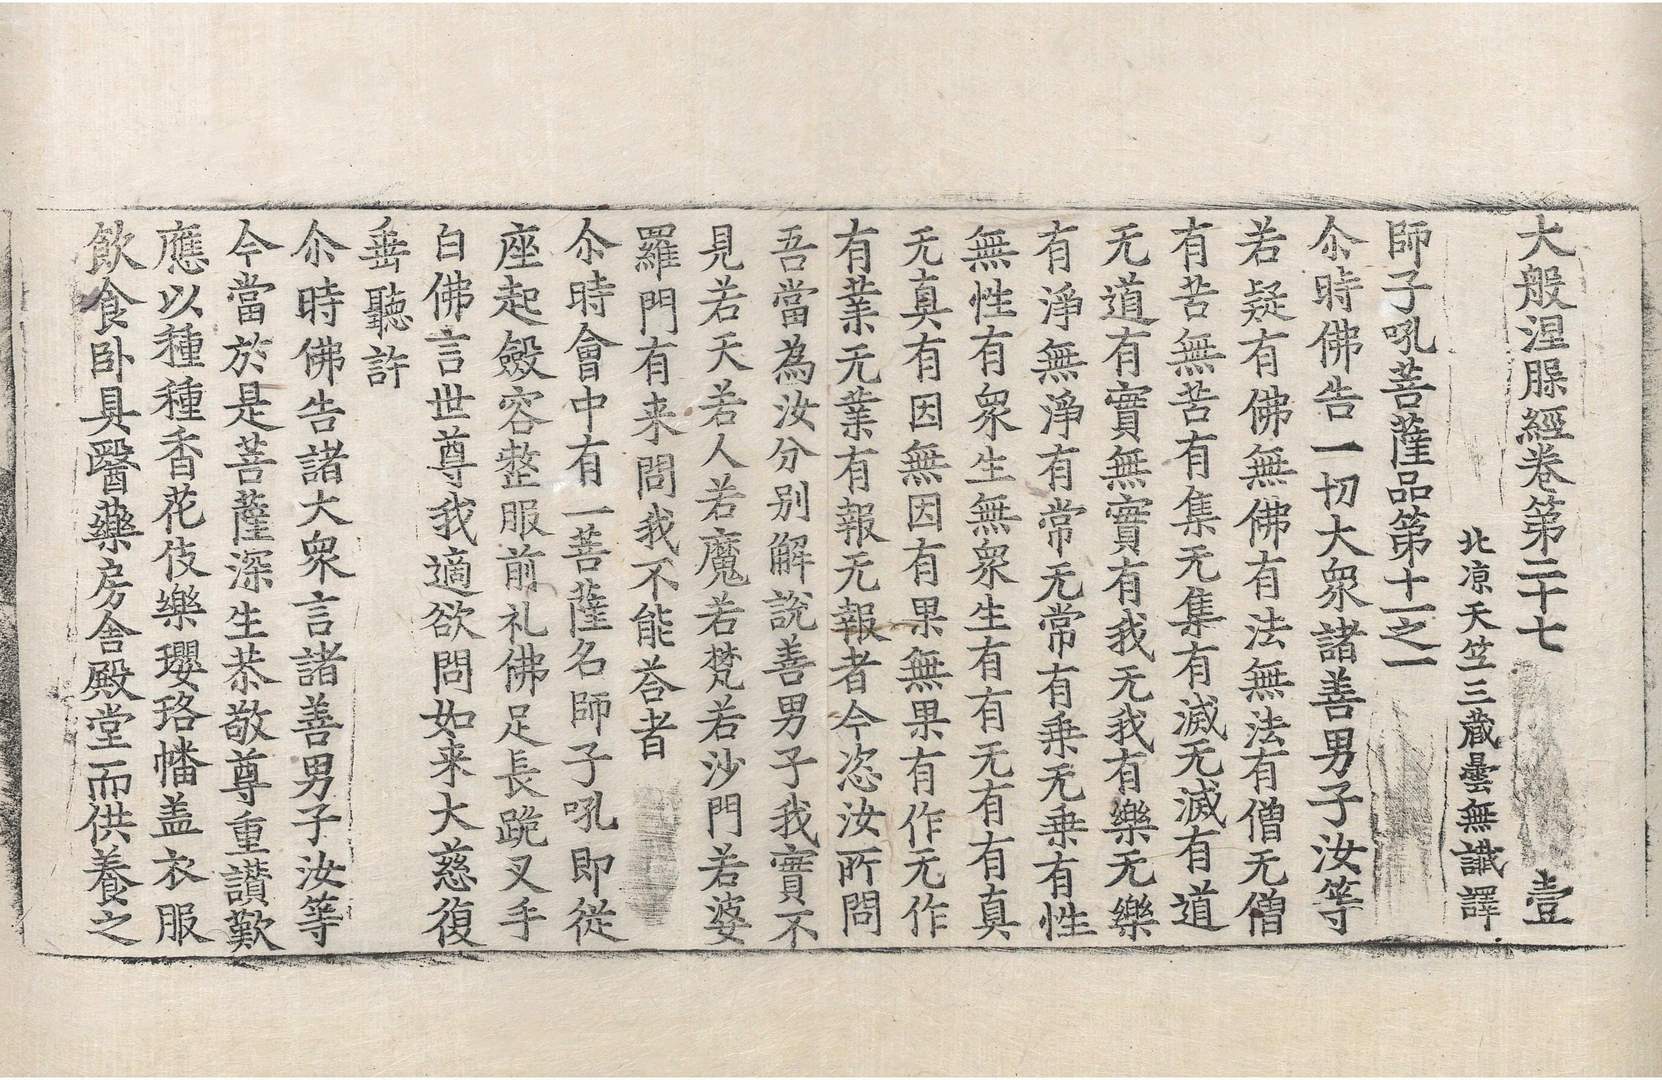 大般涅槃經卷第二十七　壹
北凉天竺三藏曇無讖譯
師子吼菩薩品第十一之一
尒時佛告一切大衆諸善男子汝等
若疑有佛無佛有法無法有僧无僧
有苦無苦有集无集有滅无滅有道
无道有實無實有我无我有樂无樂
有淨無淨有常无常有乗无乗有性
無性有衆生無衆生有有无有有真
无真有因無因有果無果有作无作
有業无業有報无報者今恣汝所問
吾當為汝分别解說善男子我實不
見若天若人若魔若梵若沙門若婆
羅門有来問我不能荅者
尒時會中有一菩薩名師子吼即從
座起斂容整服前礼佛足長跪叉手
白佛言世尊我適欲問如来大慈復
垂聽許
尒時佛告諸大衆言諸善男子汝等
今當於是菩薩深生恭敬尊重讃歎
應以種種香花伎樂瓔珞幡盖衣服
飲食卧具醫藥房舍殿堂而供養之